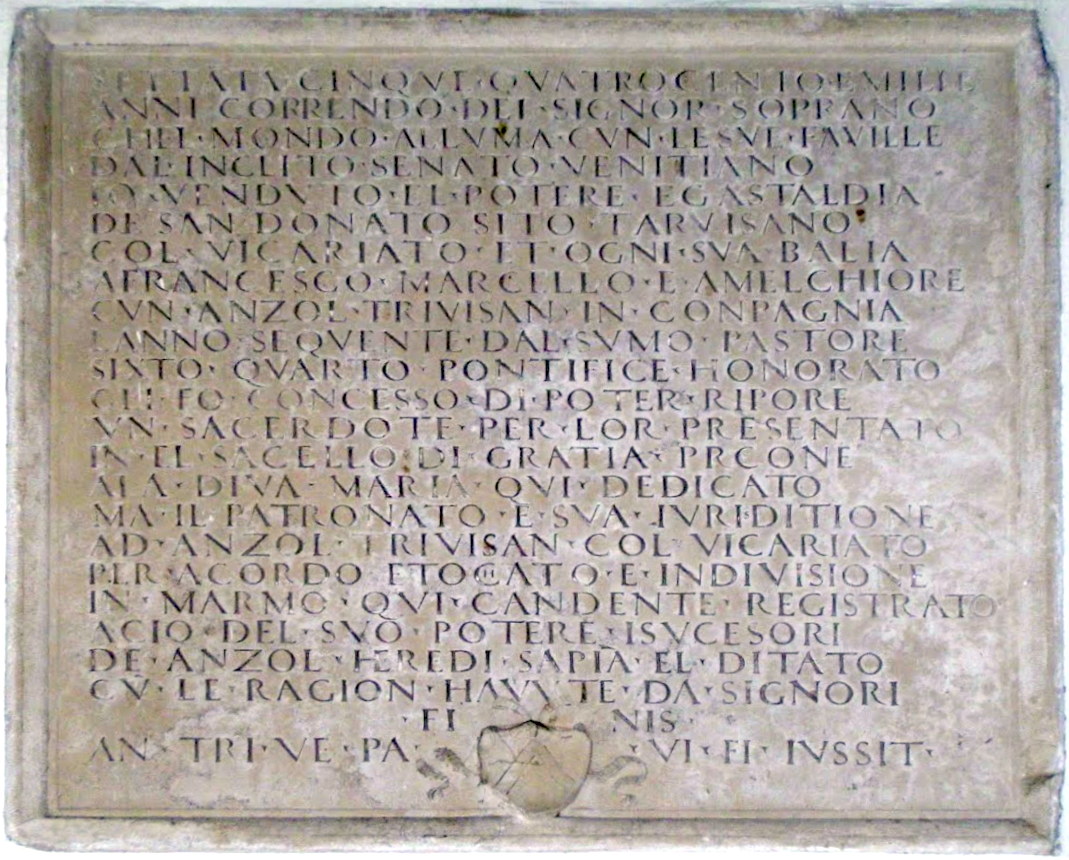 SETTATA CINQVE·QVATROCENTO·EMILLE
ANNI CORRENDO·DEL·SIGNOR·SOPRANO
CHEL·MONDO·ALLVMA·CVN·LESVE·FAVILLE
DAL·INCLITO·SENATO·VENITIANO
FO·VENDVTO·EL·POTERE·EGASTALDIA
DE SAN DONATO SITO·TARVISANO
COL·VICARIATO·ET·OGNI·SVA·BALIA
AFRANCESCO·MARCELLO·E·AMELCHIORE
CVN·ANZOL·TRIVISAN·IN·CONPAGNIA
LANNO·SEQVENTE·DAL·SVMO·PASTORE
SIXTO·QVARTO·PONTIFICE·HONORATO
CHI·FO·CONCESSO·DI·POTER·RIPORE
VN·SACERDOTE·PER·LOR·PRESENTATO
IN·EL·SACELLO·DI·GRATIA·PRCONE
ALA·DIVA·MARIA·QVI·DEDICATO
MA·IL·PATRONATO·E·SVA·IVRISDITIONE
AD·ANZOL·TRIVISAN·COL·VICARIATO
PER·ACORDO ETOCHATO·E·INDIVISIONE
IN·MARMO·QVI·CANDENTE·REGISTRATO
ACIO·DEL·SVO·POTERE·ISVCESORI
DE·ANZOL·HEREDI·SAPIA·EL·DITATO
CV·LE·RAGION·HAVVTE·DA·SIGNORI
·FI NIS·
AN·TRI·VE·PA· ·VI·FI·IVSSIT·